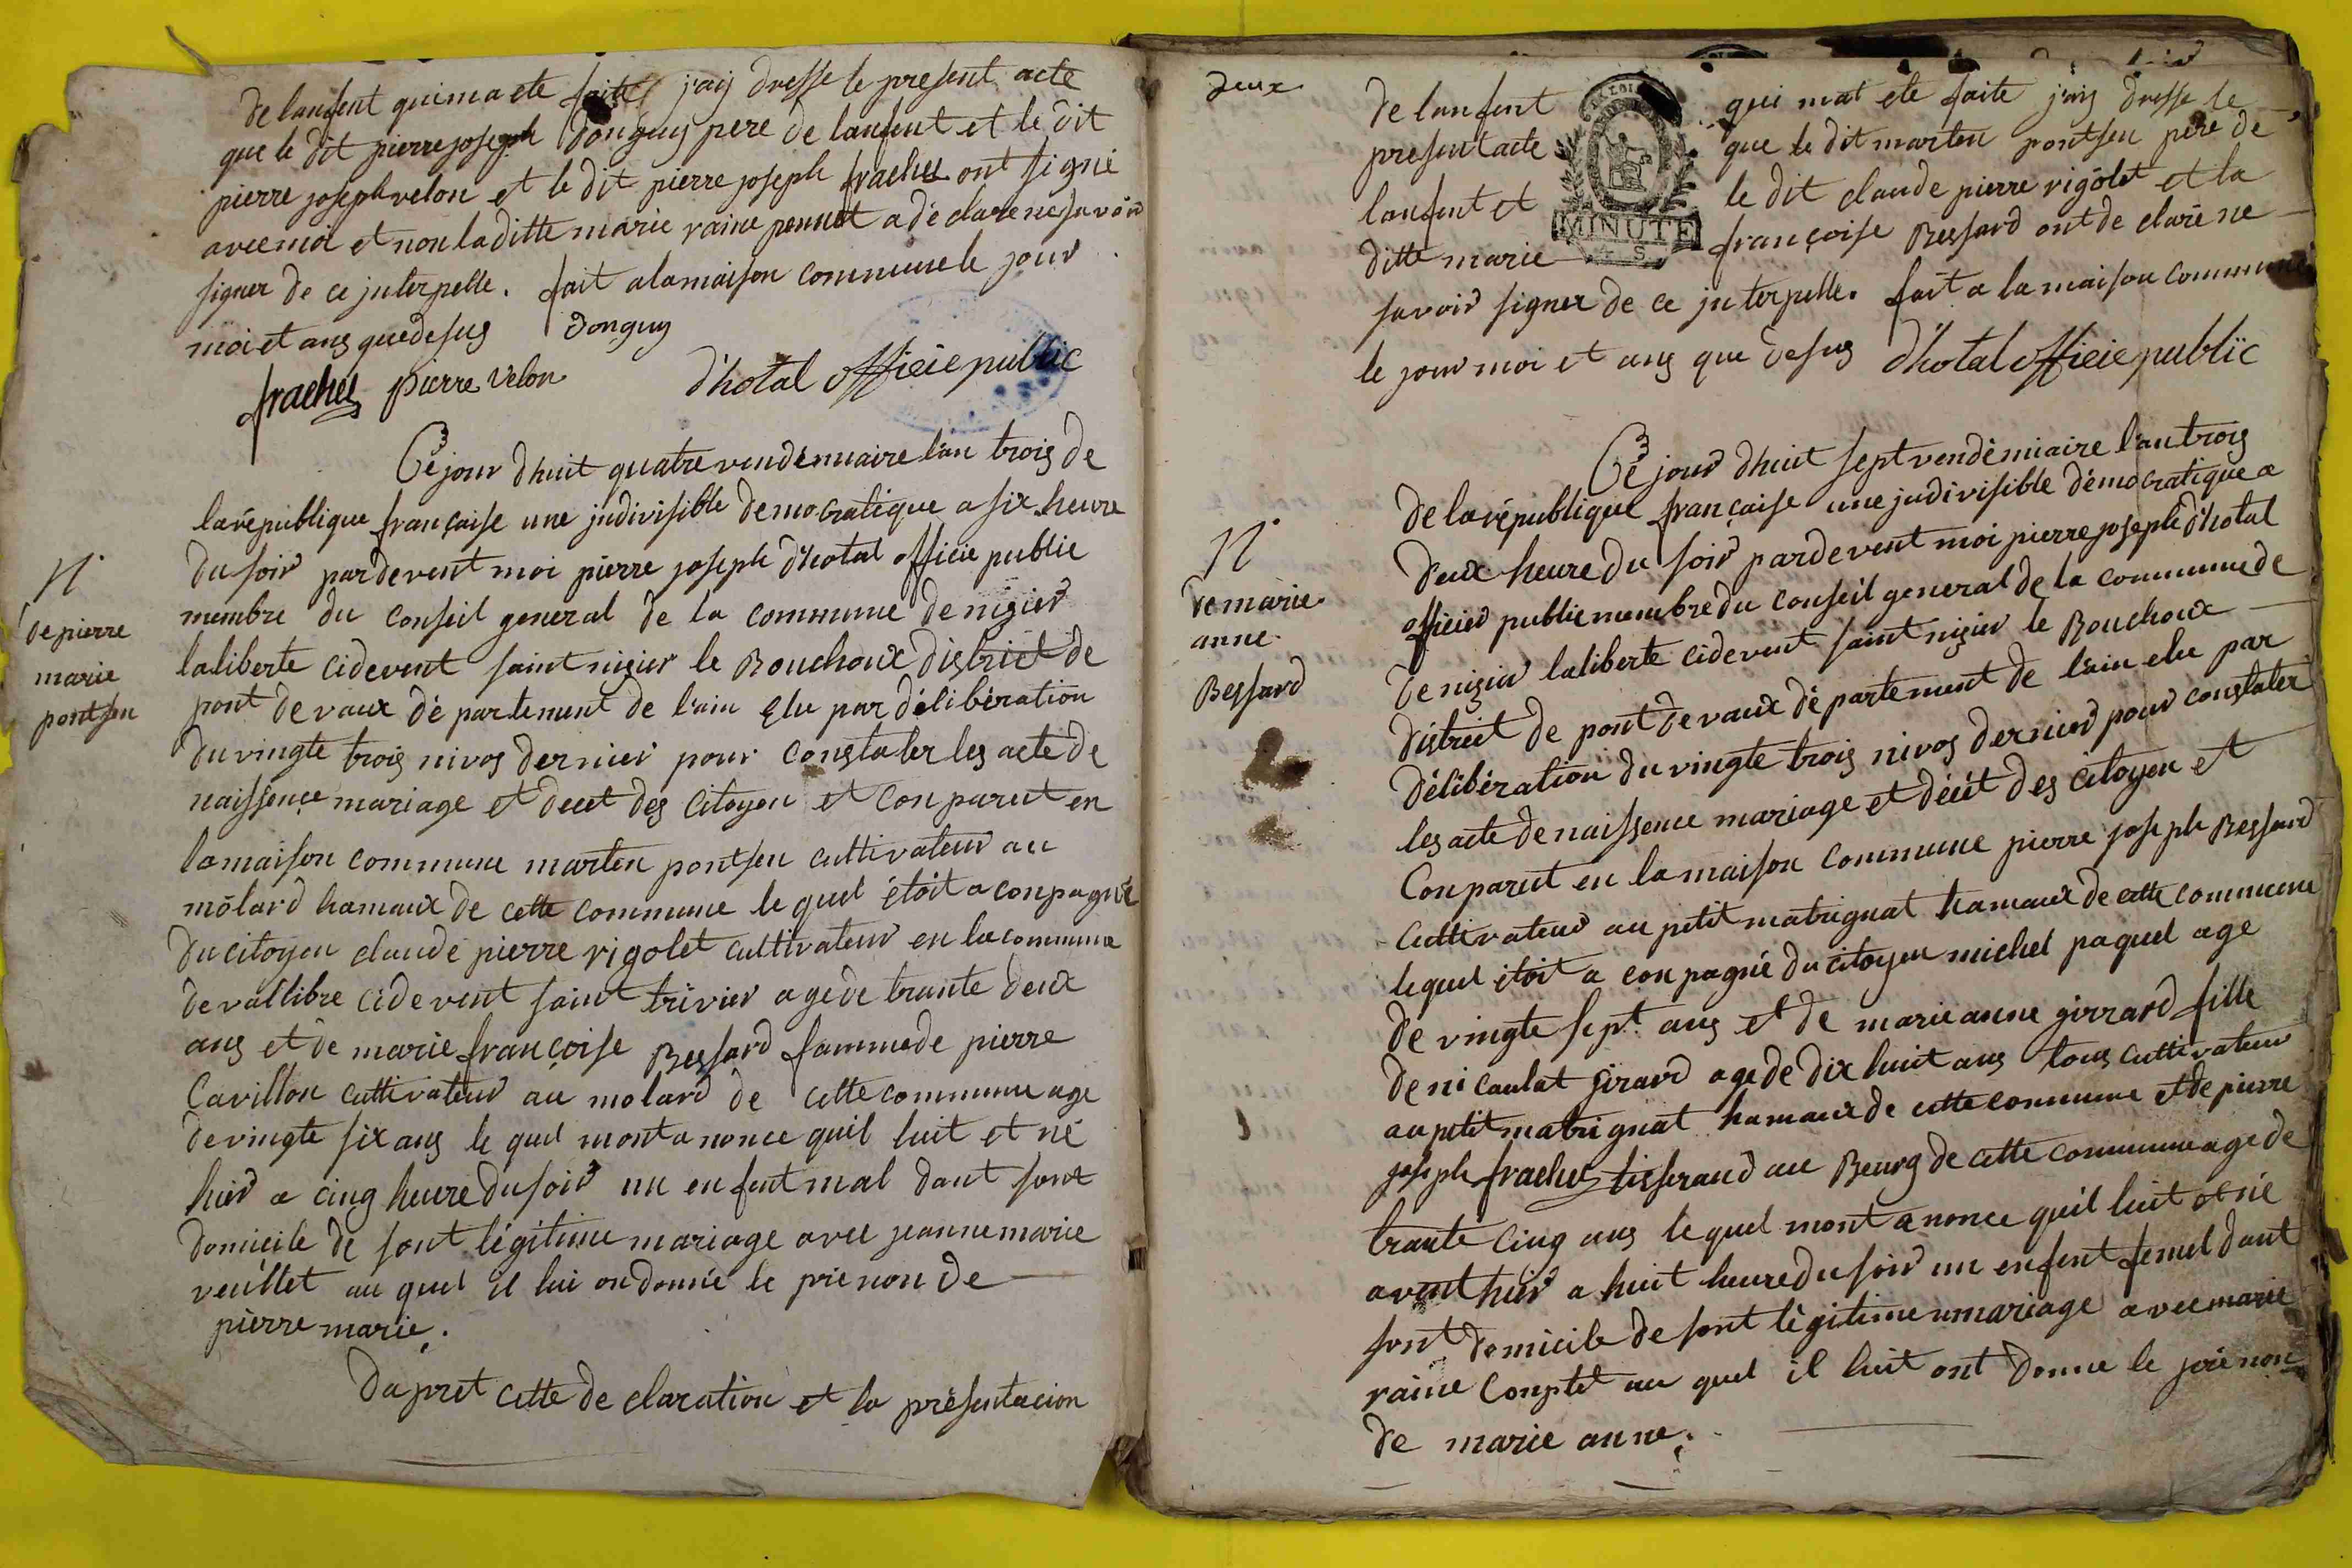 de lanfent quima ete faite j'aij dresse le present acte
que le dit pierre joseph donguy pere de lanfent et le dit
pierre joseph velon et le dit pierre joseph frachet ont signé
avec moi et non laditte marie raine pennet a déclare ne savoir
signer de ce jnterpelle. fait a lamaison commune le jour
moi et ans que desus donguy
frachet pierre velon d'hotal officie public
Ce jour dhuit quatre vendemiaire l'an trois de
la république française une jndivisible democratique a six heure
du soir pardevent moi pierre joseph d'hotal officie public
membre du conseil general de la commune de nizier
laliberte cidevent saint nizier le Bouchoux district de
pont de vaux dé partement de l'ain elu par délibération
du vingte trois nivos dernier pour constater les acte de
naissence mariage et decet des citoyen et conparut en
lamaison commune marten pontsen cultivateur au
môlard hamaux de cette commune le quel étoit a conpagné
du citoyen claude pierre rigolet cultivateur en la commune
de val libre cidevent saint trivier age de trante deux
ans et de marie françoise Bessard famme de pierre
Cavillon cultivateur au molard de cette commune age
de vingte six ans le quel mont anonce quil luit et né
hier a cinq heure du soir un enfent mal dant sont
domicile de sont légitime mariage avec jeanne marie
veüillet au quel il lui on donnée le prénon de
pierre marie.
Dapret cette de claration et la présentacion
N.
de pierre
marie
pontsen
deux
de lanfent qui mat ete faite j'aij dresse le
present acte que le dit marten pontsen père de
lanfent et le dit claude pierre rigôlet et la
ditte marie françoise Bessard ont de claré ne
MINUTE
savoir signer de ce jnterpelle. fait a la maison commune
le jour moi et ans que desus d'hotal officie public
Ce jour dhuit sept vendémiaire l'an trois
de la république française une jndivisible démocratique a
deux heure du soir pardevent moi pierre joseph d'hotal
officier public membre du conseil general de la commune de
de nizier laliberte cidevent saint nizier le Bouchoux
district de pont de vaux dé partement de l'ain elu par
délibération du vingte trois nivos dernier pour constater
les acte de naissence mariage et décét des citoyen et
Conparut en la maison commune pierre joseph Bessard
cultivateur au petit matrignat hamaux de cette commune
lequel étoit a conpagné du citoyen michel paquel age
de vingte sept ans et de marie anne girrard fille
de ni caulat girard age de dix huit ans tous cultivateur
au petit matrignat hamaux de cette commune et de pierre
joseph frachet tisserand au Beurg de cette commune age de
trante cinq ans le quel mont anonce quil luit et né
avent hier a huit heure du soir un enfent femel dant
sont domicile de sont légitime mariage avec marie
raine Conptet au quel il luit ont donne le prénon
de marie anne.
N.
de marie
anne
Bessard